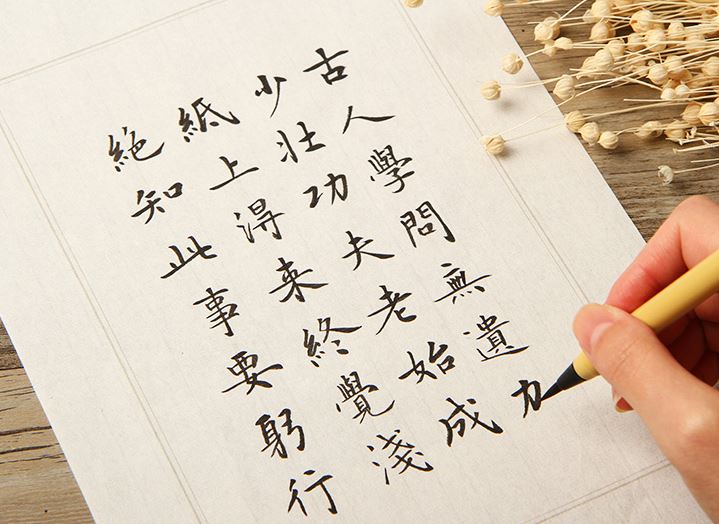 古人學問無遺力
少壯功夫老始成
紙上得来終覺淺
絕知此事要躬行